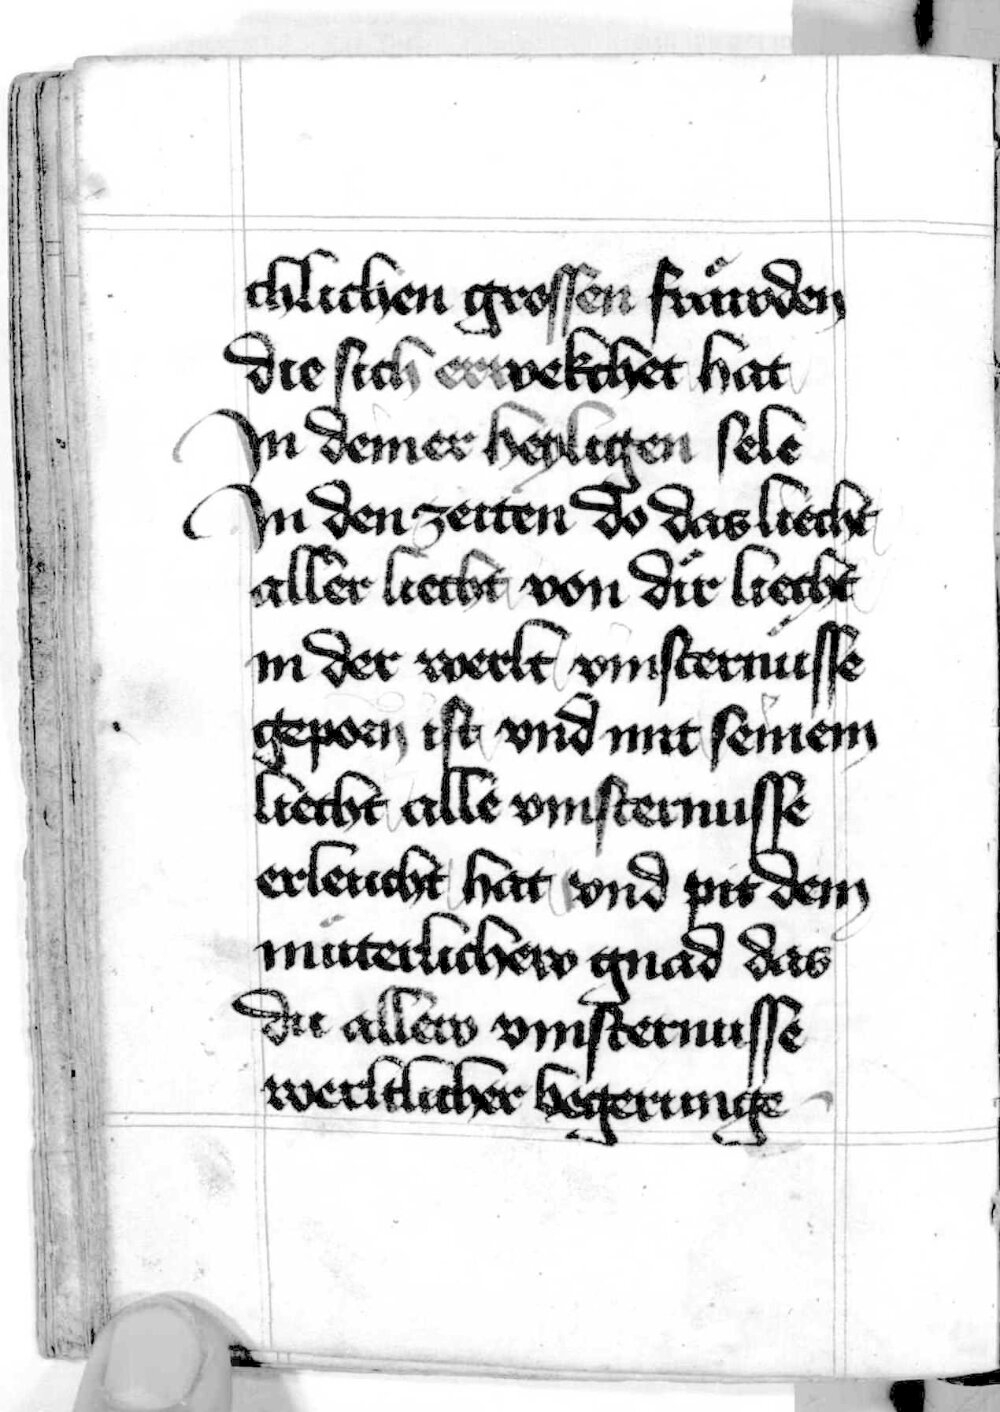 chlichen grossen fräwden
die sich erwekchet hat
In deiner heyligen sele
In den zeiten do das liecht
aller liecht von dir liecht
in der werlt vinsternüsse
geporn ist vnd mit seinem
liecht alle vinsternusse
erleucht hat vnd pit dein
müterlichew gnad das
du allew vinsternusse
werltlicher begerunge